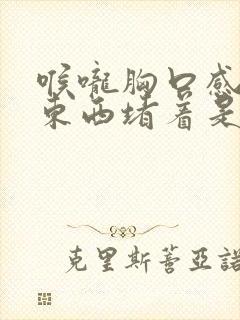 喉嚨胸口感
東西堵着是
克里斯蒂亞諾